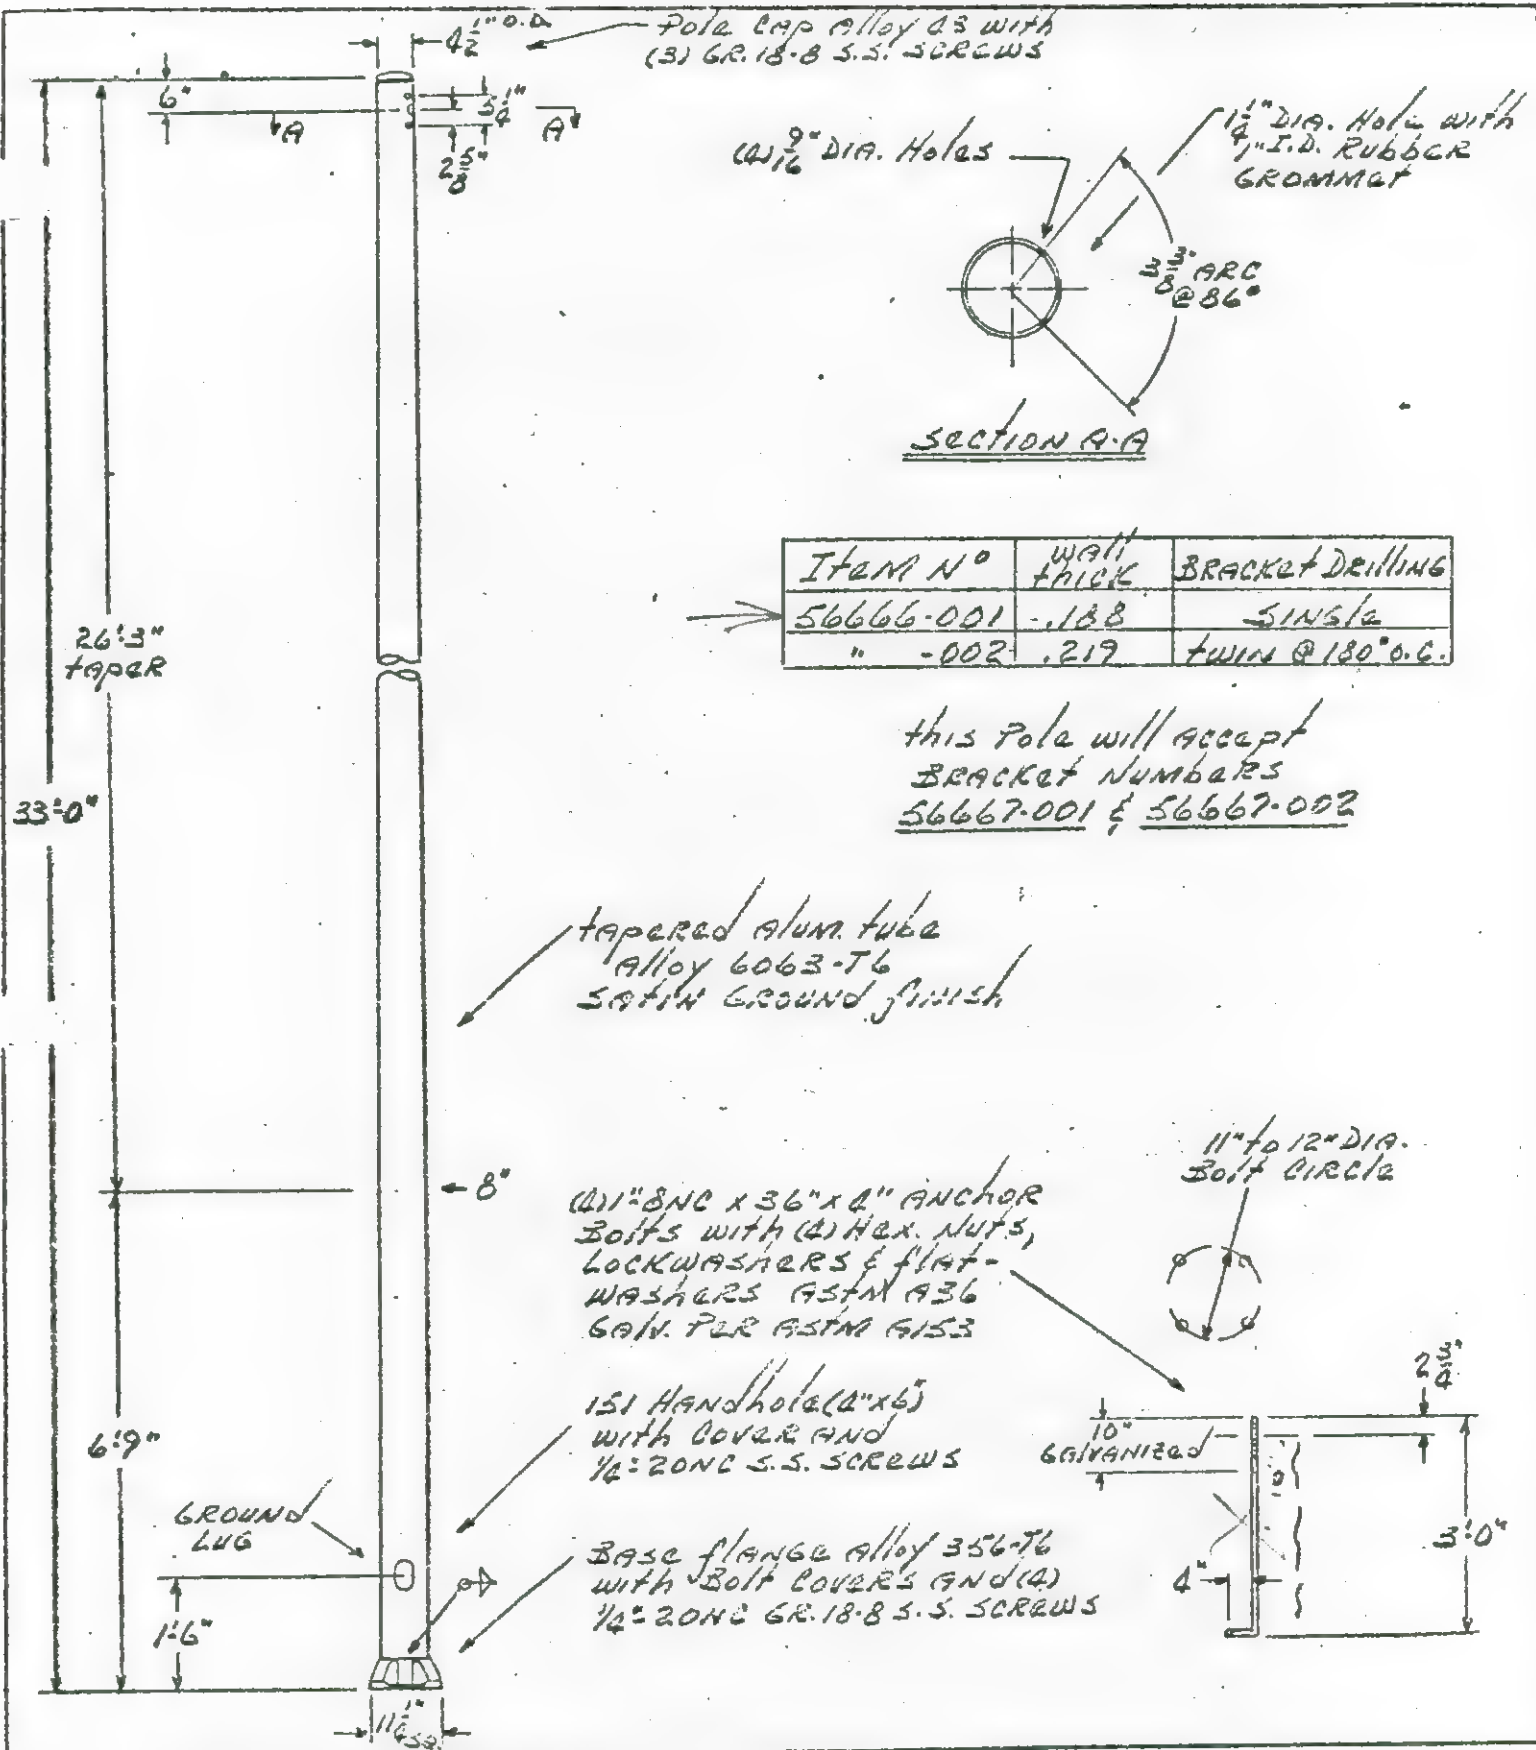 4 1/2" O.D.
Pole Cap Alloy 43 with
(3) GR. 18-8 S.S. SCREWS
6"
A
A
5 1/4"
2 5/8"
(4) 9/16" DIA. Holes
1 1/4" DIA. Hole with
1" I.D. RUBBER
GROMMET
3 3/8" ARC
@ 86°
SECTION A-A
Item No | Wall thick | BRACKET DRilling
56666-001 | .188 | SINGle
" -002 | .219 | twin @ 180° O.C.
this Pole will Accept
BRACKET NUMbeRS
56667-001 & 56667-002
26'-3"
tAPeR
33'-0"
tAPeRed Alum. tube
Alloy 6063-T6
SAtiN GROUNd finish
8"
(4) 1"-8NC x 36" x 4" ANCHOR
Bolts with (4) Hex. Nuts,
LOCKWASheRS & flAt-
WASheRS AStM A36
GAlV. PeR AStM A153
11" to 12" DIA.
Bolt CiRCle
151 HANdhole (4"x6")
with COVeR ANd
1/4"-20NC S.S. SCReWS
10"
GAlVANIZed
2 3/4"
3'-0"
4"
6'-9"
GROUNd
LUG
1'-6"
BASe flANGe Alloy 356-T6
with Bolt COVeRS ANd (4)
1/4"-20NC GR. 18-8 S.S. SCReWS
11 1/4" SQ.